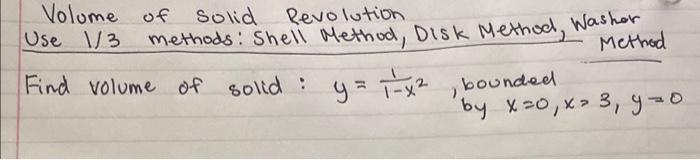 Volume of Solid Revolution
Use 1/3 methods: Shell Method, Disk Method, Washer
Method
Find volume of solid: y = 1/1-x², bounded
by x=0, x=3, y=0